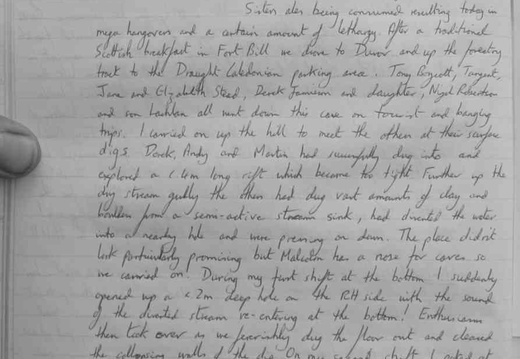 Sisters ales being consumed resulting today in
mega hangovers and a certain amount of lethargy. After a traditional
Scottish breakfast in Fort Bill we drove to Duror and up the forestry
track to the Draught Caledonian parking area. Tony Boycott, Tangent,
Jane and Elizabeth Stead, Derek Jamieson and daughter, Nigel Robertson
and son Lachlan all went down this cave on tourist and banging
trips. I carried on up the hill to meet the others at their surface
digs. Derek, Andy and Martin had successfully dug into and
explored a c4m long rift which became too tight. Further up the
dry stream gully the others had dug vast amounts of clay and
boulders from a semi-active stream sink, had diverted the water
into a nearby hole and were pressing on down. The place didn't
look particularly promising but Malcolm has a nose for caves so
we carried on! During my first shift at the bottom I suddenly
opened up a c.2m deep hole on the RH side with the sound
of the diverted stream re-entering at the bottom! Enthusiasm
then took over as we feverishly dug the floor out and cleared
the collapsing walls of the dig. On my second shift I